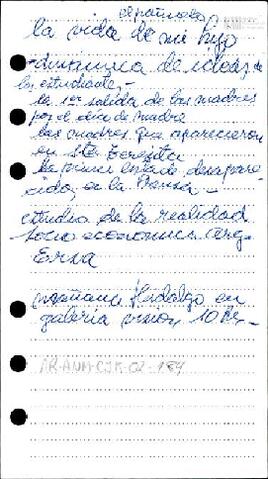 española
la vida de mi hijo
- dinamica de ideas, de
los estudiantes,-
- la 1er salida de las madres
por el dia de madre
las madres que aparecieron
en Sta Teresita
- la primer listado desapare-
cidos, en la Prensa -
estudio de la realidad
socio economica Arg
Erna
mañana Hidalgo en
galeria 10 hs-
AR-ANM-CJR-02-184